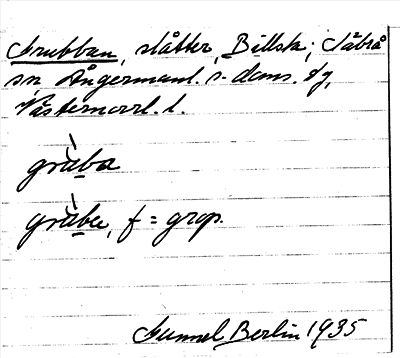 Grubban, slåtter, Billsta; Säbrå
sn Ångermanl. s. doms. dg,
Västernorrl. l.
grùba
grùbe, f = grop.
Gunnel Berlin 1935